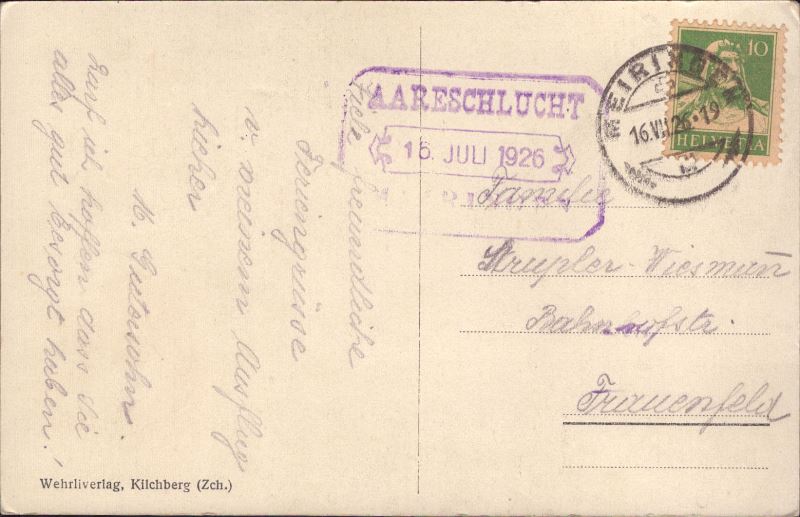 Viele freundliche
Feriengrüsse
v. meinem Ausflug
hieher
M. Gutersohn
Darf ich hoffen dass Sie
alles gut besorgt haben!
AARESCHLUCHT
16. JULI 1926
MEIRINGEN
MEIRINGEN
16.VII.26-19
10
HELVETIA
Familie
Strupler-Wiesmann
Bahnhofstr.
Frauenfeld
Wehrliverlag, Kilchberg (Zch.)